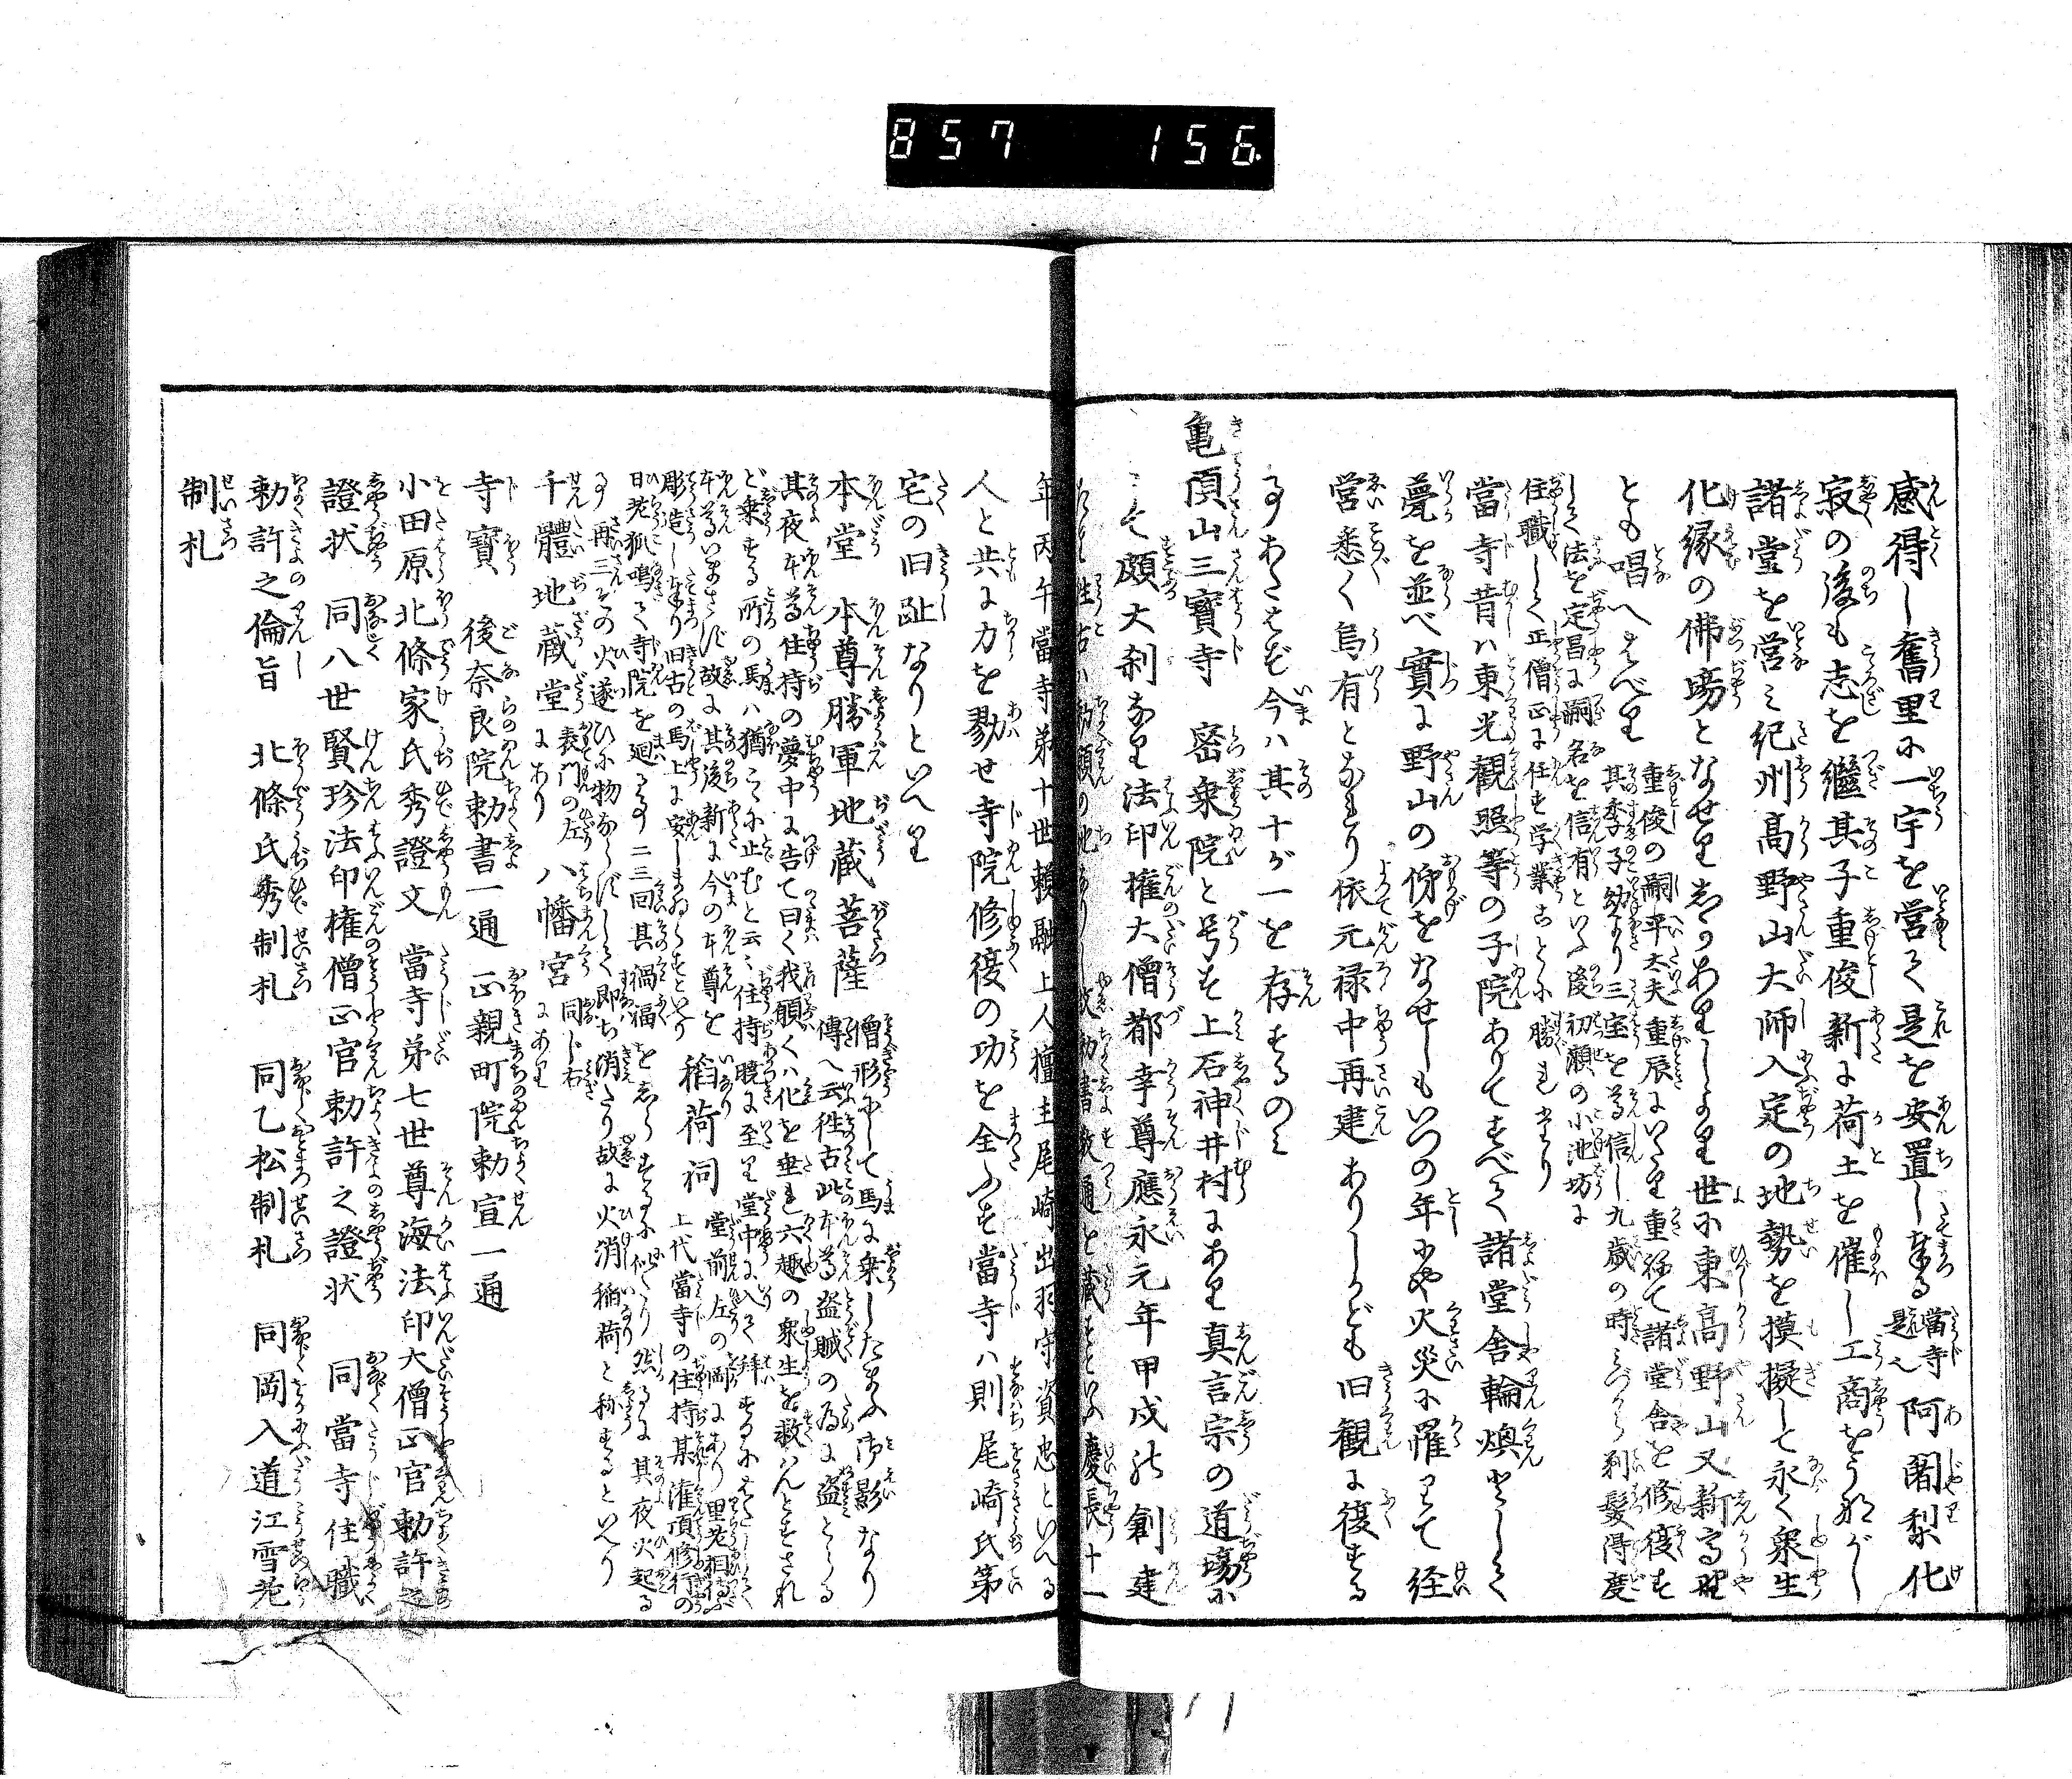 857 156
感得し舊里に一宇を営て是を安置し奉る 當寺是也 阿闍梨化
寂の後も志を継其子重俊新に荷土を催し工商をうながし
諸堂を営み紀州高野山大師入定の地勢を摸擬して永く衆生
化縁の佛場となせりしかありしより世に東高野山又新高野
とも唱へはべり 重俊の嗣平太夫重辰にいたり重ねて諸堂舎を修復す
其季子幼より三宝を尊信し九歳の時みづから剃髪得度
して法を定昌に嗣名を信有といふ後初瀬の小池坊に
住職して正僧正に任す学業ことに勝れたり
當寺昔ハ東光観照等の子院ありてすべて諸堂舎輪煥として
甍を並べ實に野山の俤をなせしもいつの年にや火災に罹りて経
営悉く烏有となれり依元禄中再建ありしかども旧観に復する
事あたはず今ハ其十が一を存するのみ
亀頂山三寶寺 密乗院と号す上石神井村にあり真言宗の道場に
して頗大刹なり法印権大僧都幸尊應永元年甲戌の創建
往古ハ勅願の地 勅書数通を蔵すといふ慶長十一
年丙午當寺第十世頼融上人檀主尾崎出羽守資忠といへる
人と共に力を勠せ寺院修復の功を全ふす當寺ハ則尾崎氏第
宅の旧趾なりといへり
本堂 本尊勝軍地蔵菩薩 僧形にして馬に乗したまふ御影なり
傳へ云往古此本尊盗賊の為に盗とらる
其夜本尊住持の夢中に告て曰く我願くハ化を垂れ六趣の衆生を救ハんとすされ
ど乗する所の馬ハ猶こゝに止むと云云住持暁に至り堂中に入て拝するにはたして
本尊いまさず故に其後新に今の本尊を
彫造し奉り旧古の馬上に安しまゐらすといへり
稲荷祠 堂前左の岡にあり里老相伝ふ
上代當寺の住持某灌頂修行の
日老狐鳴て寺院を廻る事二三回其禍福をしらするに似たり然るに其夜火起る
事再三その火遂ひに物ならずして即ち消たり故に火消稲荷と称するといへり
千體地蔵堂 表門の左にあり 八幡宮 同し右にあり
寺寶 後奈良院勅書一通 正親町院勅宣一通
小田原北條家氏秀證文 當寺第七世尊海法印大僧正官勅許之
證状 同八世賢珍法印権僧正官勅許之證状 同當寺住職
勅許之倫旨 北條氏秀制札 同乙松制札 同岡入道江雪老
制札